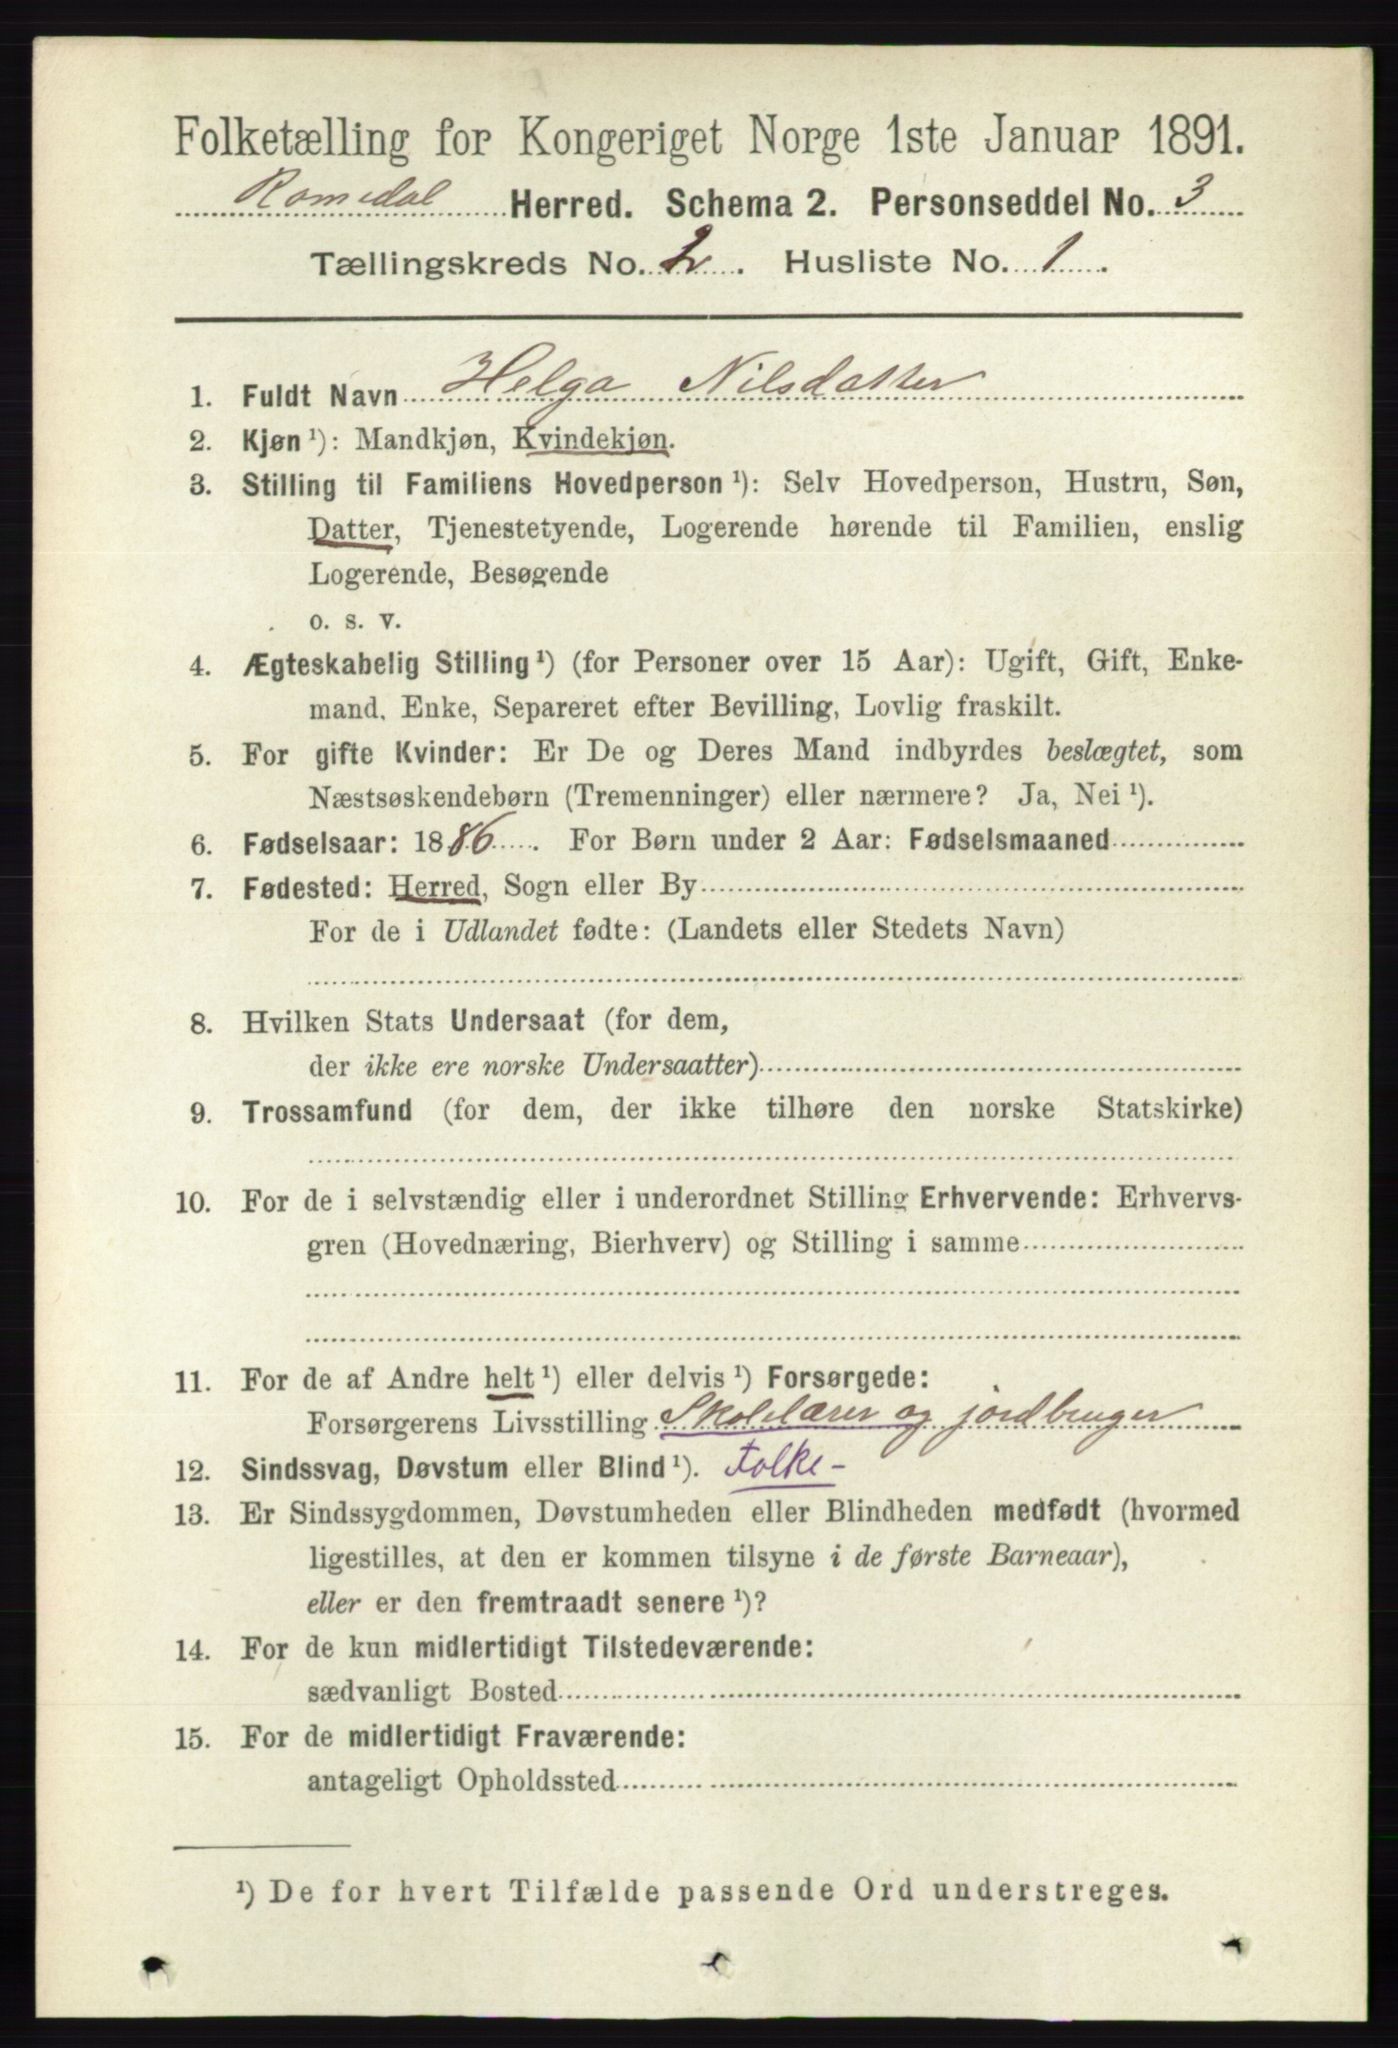 Folketælling for Kongeriget Norge 1ste Januar 1891.
Romedal Herred. Schema 2. Personseddel No. 3
Tællingskreds No. 2. Husliste No. 1.
1. Fuldt Navn Helga Nilsdatter
2. Kjøn ¹): Mandkjøn, Kvindekjøn.
3. Stilling til Familiens Hovedperson ¹): Selv Hovedperson, Hustru, Søn,
Datter, Tjenestetyende, Logerende hørende til Familien, enslig
Logerende, Besøgende
o. s. v.
4. Ægteskabelig Stilling ¹) (for Personer over 15 Aar): Ugift, Gift, Enke-
mand, Enke, Separeret efter Bevilling, Lovlig fraskilt.
5. For gifte Kvinder: Er De og Deres Mand indbyrdes beslægtet, som
Næstsøskendebørn (Tremenninger) eller nærmere? Ja, Nei ¹).
6. Fødselsaar: 1886. For Børn under 2 Aar: Fødselsmaaned
7. Fødested: Herred, Sogn eller By
For de i Udlandet fødte: (Landets eller Stedets Navn)
8. Hvilken Stats Undersaat (for dem,
der ikke ere norske Undersaatter)
9. Trossamfund (for dem, der ikke tilhøre den norske Statskirke)
10. For de i selvstændig eller i underordnet Stilling Erhvervende: Erhvervs-
gren (Hovednæring, Bierhverv) og Stilling i samme
11. For de af Andre helt ¹) eller delvis ¹) Forsørgede:
Forsørgerens Livsstilling Skolelærer og jordbruger
12. Sindssvag, Døvstum eller Blind ¹). Folke-
13. Er Sindssygdommen, Døvstumheden eller Blindheden medfødt (hvormed
ligestilles, at den er kommen tilsyne i de første Barneaar),
eller er den fremtraadt senere ¹)?
14. For de kun midlertidigt Tilstedeværende:
sædvanligt Bosted
15. For de midlertidigt Fraværende:
antageligt Opholdssted
¹) De for hvert Tilfælde passende Ord understreges.